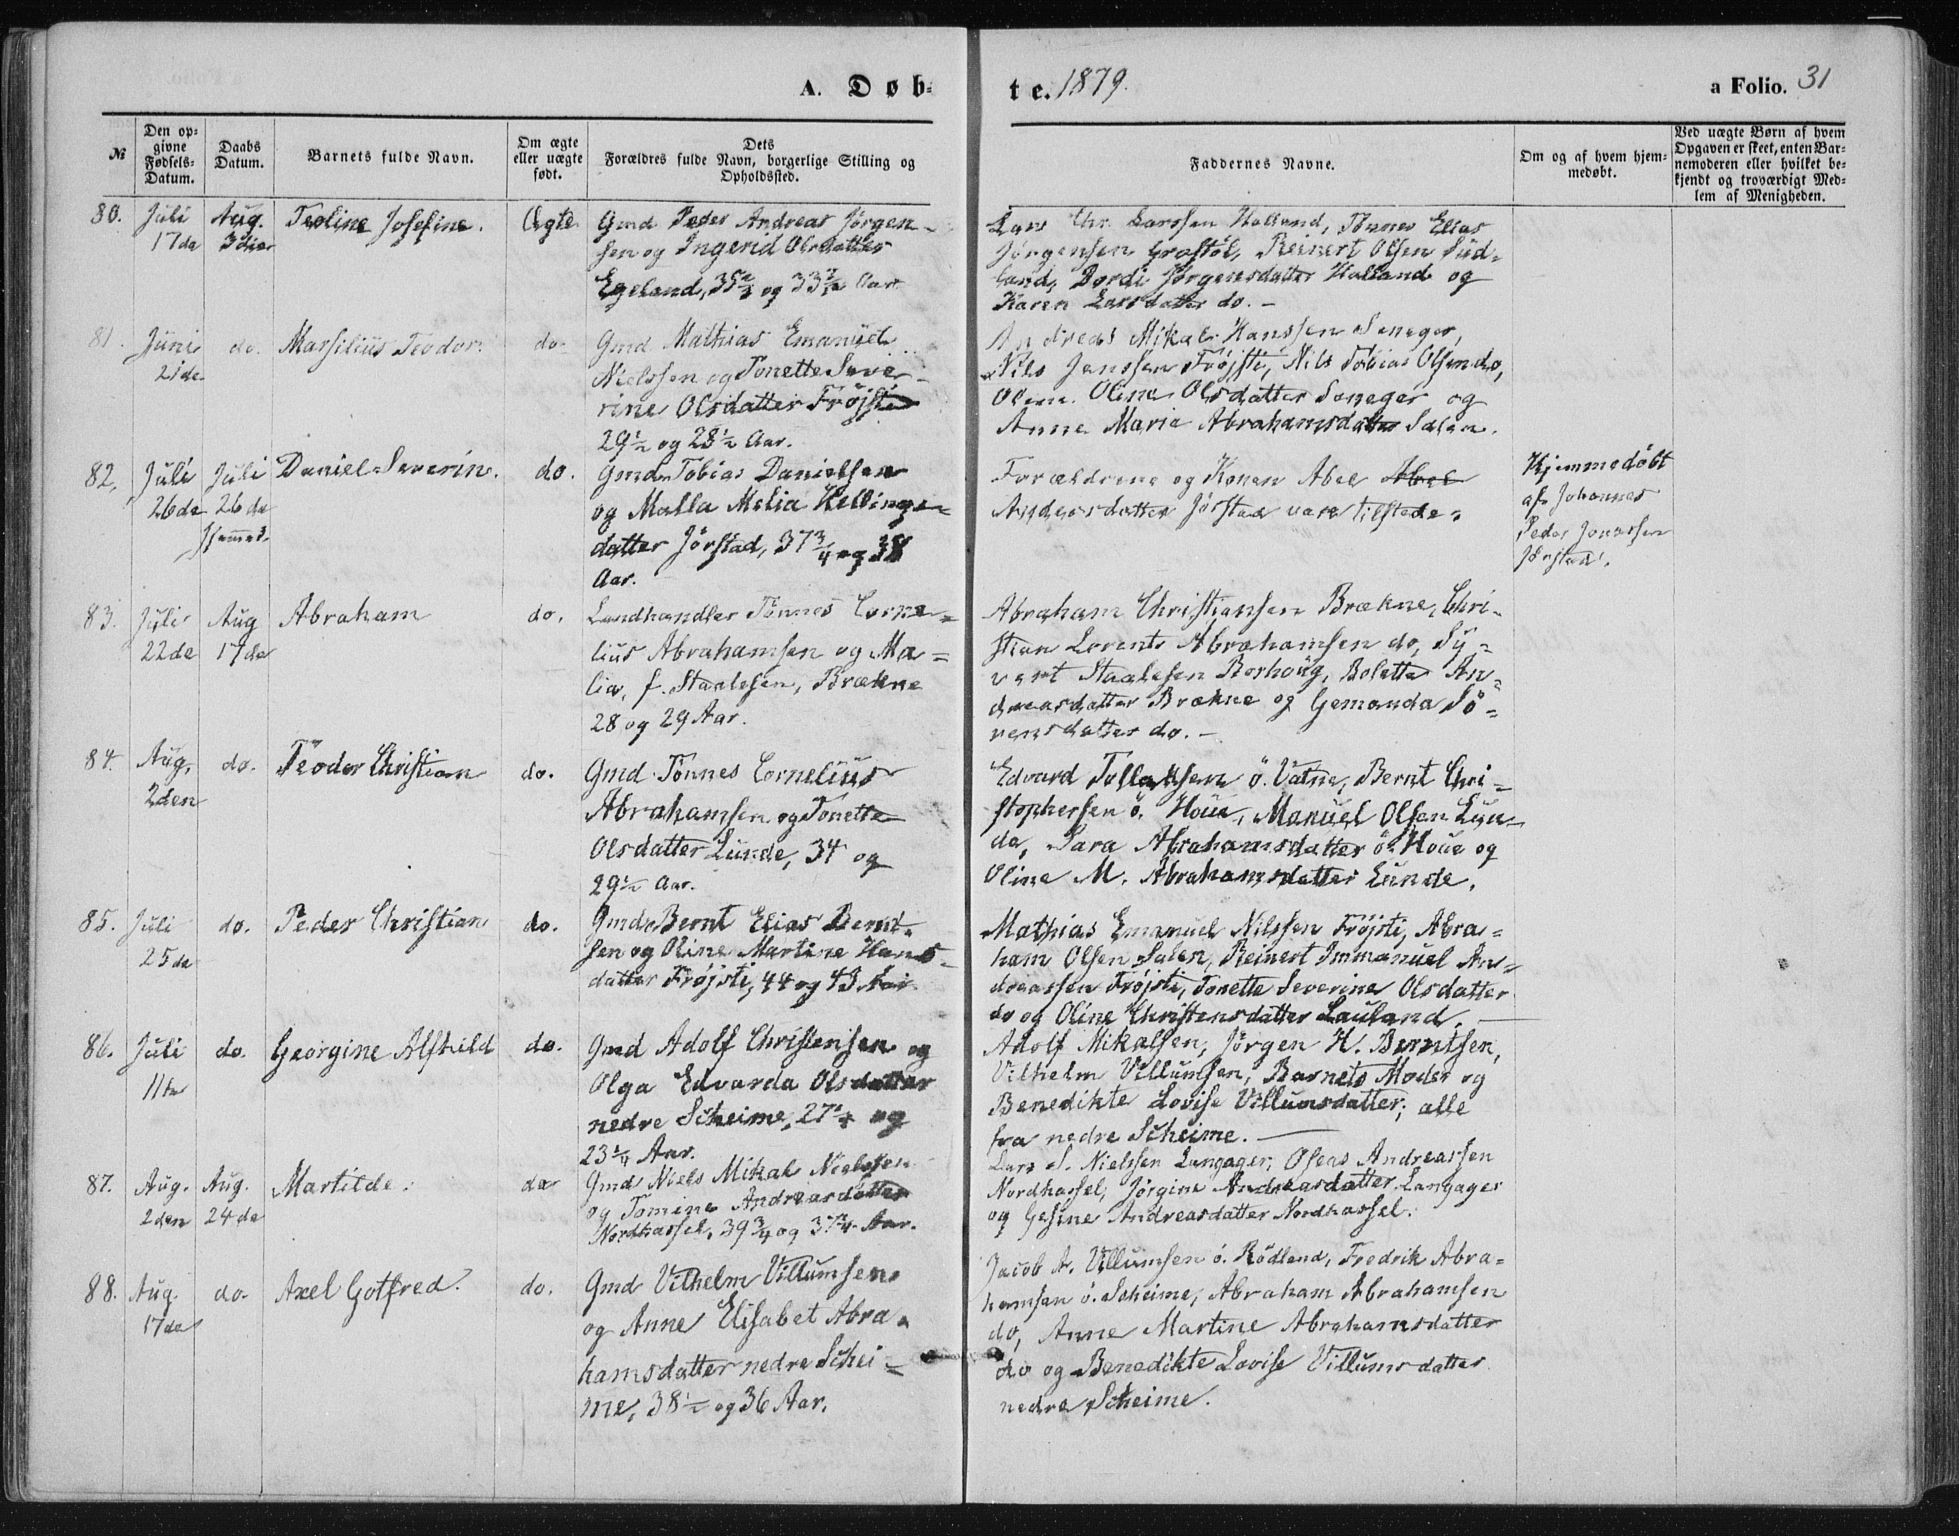 A. Døb=
te. 1879.
a Folio. 31
№
Den op=
givne
Fødsels=
Datum.
Daabs
Datum.
Barnets fulde Navn.
Om ægte
eller uægte
født.
Dets
Forældres fulde Navn, borgerlige Stilling og
Opholdssted.
Faddernes Navne.
Om og af hvem hjem=
medøbt.
Ved uægte Børn af hvem
Opgaven er skeet, enten Bar=
nemoderen eller hvilket be=
kjendt og troværdigt Med=
lem af Menigheden.
80. Juli Aug. Teoline Josefine. Ægte Gmd Peder Andreas Jørgen-
17de 3die sen og Ingerid Olsdatter
Egeland, 35 og 33 Aar.
Lars Chr. Larssen Halland, Tönnes Elias
Jørgensen Grostöl, Reinert Olsen Süd-
land, Dordi Jørgensdatter Halland og
Karen Larsdatter do. -
81. Juni do. Marsilius Teodor. do. Gmd Mathias Emanuel
21de Nielssen og Tonette Seve-
rine Olsdatter Fröjsti
29½ og 28½ Aar.
Andreas Mikal Hanssen Soneger,
Nils Janssen Fröjsti, Nils Tobias Olsen do,
Oline Olsdatter Soneger og
Anne Maria Abrahamsdatter Salen.
82. Juli Juli Daniel Severin. do. Gmd Tobias Danielsen
26de 26de og Malla Malia
Hjemmed. datter Jörstad, 37¾ og 38
Aar.
Forældrene og Konen Abel Abel
Andersdatter Jörstad vare tilstede.
Hjemmedöbt
af Johannes
Peder Jonassen
Jörstad.
83. Juli Aug Abraham do. Landhandler Tönnes Corne=
22de 17de lius Abrahamsen og Ma=
lia, f. Staalesen, Brækne
28 og 29 Aar.
Abraham Christiansen Brækne, Chri-
stian Lorents Abrahamsen do, Sy-
vert Staalesen Borhoüg, Bolette An-
dreasdatter Brækne og Gemanda Sö-
rensdatter do. -
84. Aug. do. Teodor Christian do. Gmd Tönnes Cornelius
2den Abrahamsen og Tonette
Olsdatter Lunde, 34 og
29½ Aar.
Edvard Tollaksen ö. Vatne, Bernt Chri-
stophersen ö. Houe, Manuel Olsen Lun-
de, Sara Abrahamsdatter ö. Houe og
Oline M. Abrahamsdatter Lunde.
85. Juli do. Peder Christian do. Gmd Bernt Elias Bernt-
25de sen og Oline Martine Hans-
datter Fröjsti, 44 og 43 Aar.
Mathias Emanuel Nilssen Fröjsti, Abra=
ham Olsen Salen, Reinert Immanuel An=
dreassen Fröjsti, Tonette Severine Olsdatter
do og Oline Christensdatter Lauland.
86. Juli do. Georgine Alfhild do. Gmd Adolf Christensen og
11te Olga Edvarda Olsdatter
nedre Scheime, 27 og
23¼ Aar.
Adolf Mikalsen, Jörgen H. Berntsen,
Vilhelm Villumsen, Barnets Moder og
Benedikte Lovise Villumsdatter, alle
fra nedre Scheime.
87. Aug. Aug. Martilde. do Gmd Niels Mikal Nielssen
2den 24de og Tomine Andreasdatter
Nordhassel, 39¾ og 37¾ Aar.
Lars S. Nielssen Langager, Oseas Andreassen
Nordhassel, Jörgine Andreasdatter Langager
og Gesine Andreasdatter Nordhassel.
88. Aug. do. Axel Gotfred. do. Gmd Vilhelm Villumsen
17de og Anne Elisabet Abra-
hamsdatter nedre Schei=
me, 38½ og 36 Aar.
Jacob A. Villumsen ö. Rödland, Fredrik Abra=
hamsen ö. Scheime, Abraham Abrahamsen
do, Anne Martine Abrahamsdatter
do og Benedikte Lovise Villumsdatter
nedre Scheime.